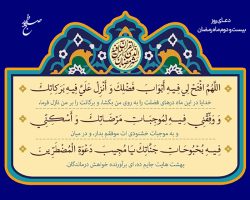 دعای روز
بیست و دوم ماه رمضان
اللَّهُمَّ افْتَحْ لِي فِيهِ أَبْوَابَ فَضْلِكَ وَ أَنْزِلْ عَلَيَّ فِيهِ بَرَكَاتِكَ
خدایا در این ماه درهای فضلت را به روی من بگشا و برکاتت را بر من نازل فرما،
وَ وَفِّقْنِي فِيهِ لِمُوجِبَاتِ مَرْضَاتِكَ وَ أَسْكِنِّي
و به موجبات خشنودی ات موفقم بدار، و در میان
فِيهِ بُحْبُوحَاتِ جَنَّاتِكَ يَا مُجِيبَ دَعْوَةِ الْمُضْطَرِّينَ
بهشت هایت جایم ده، ای برآورنده خواهش درماندگان.